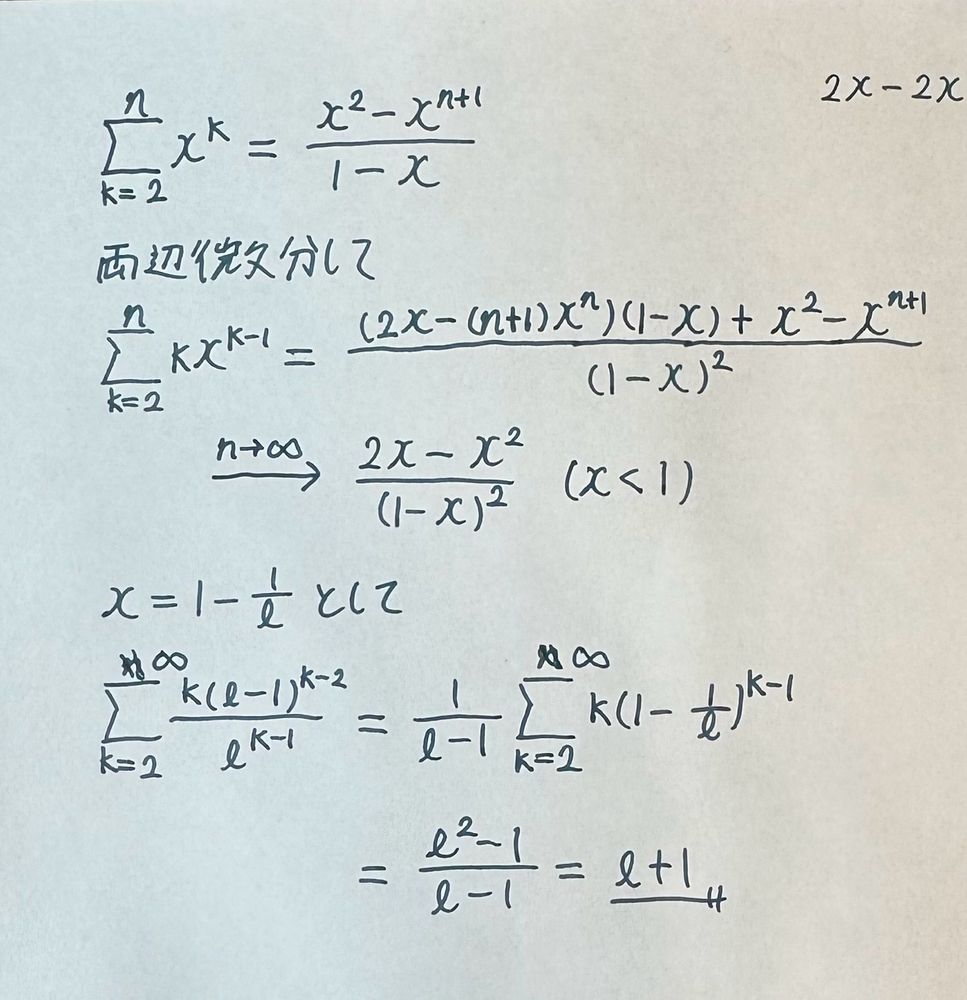 2x - 2x
\sum_{k=2}^{n} x^k = \frac{x^2 - x^{n+1}}{1 - x}
両辺微分して
\sum_{k=2}^{n} kx^{k-1} = \frac{(2x - (n+1)x^n)(1-x) + x^2 - x^{n+1}}{(1-x)^2}
\xrightarrow{n→∞} \frac{2x - x^2}{(1-x)^2} (x < 1)
x = 1 - \frac{1}{ℓ} として
\sum_{k=2}^{∞} \frac{k(ℓ-1)^{k-2}}{ℓ^{k-1}} = \frac{1}{ℓ-1} \sum_{k=2}^{∞} k(1 - \frac{1}{ℓ})^{k-1}
= \frac{ℓ^2 - 1}{ℓ - 1} = ℓ+1